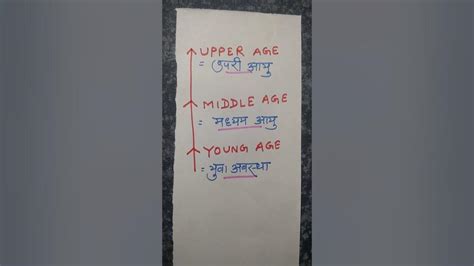 UPPER AGE
= उपरी आयु
MIDDLE AGE
= मध्यम आयु
YOUNG AGE
= युवा अवस्था